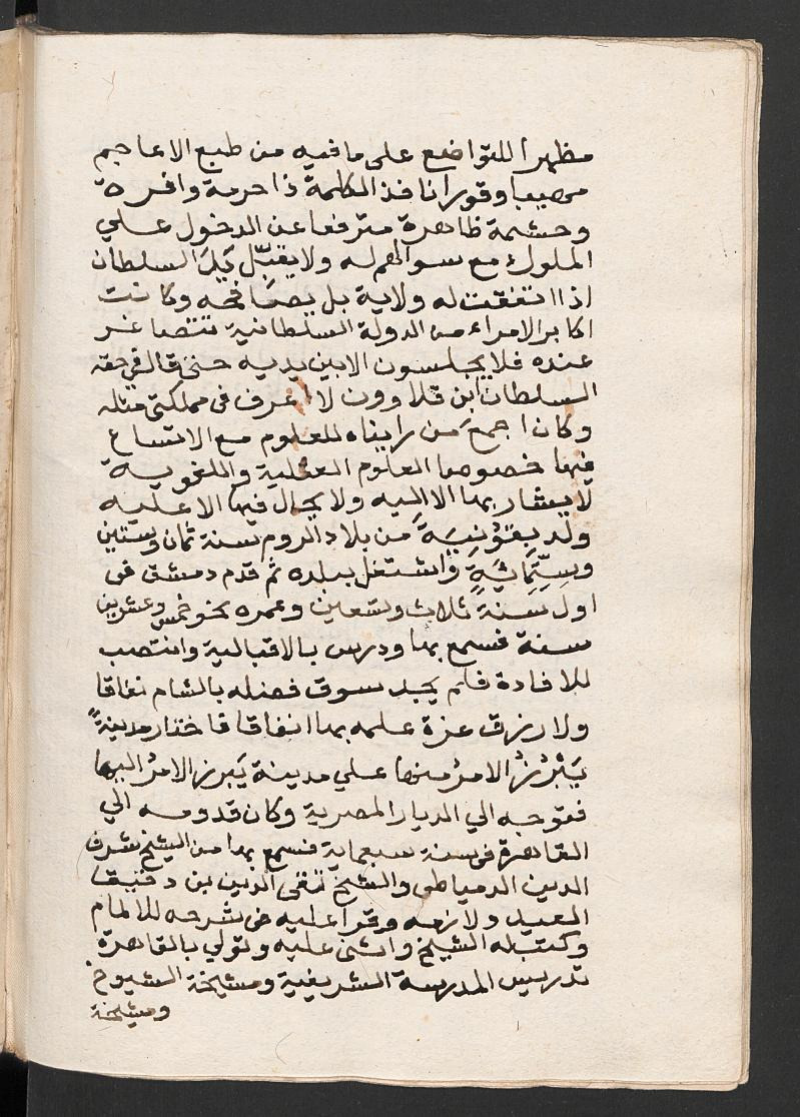 مظهرا للتواضع على ما فيه من طبع الاعاجم
مهيبا وقورا نافذ الكلمة ذا حرمة وافرة
وحشمة ظاهرة مترفعا عن الدخول علي
الملوك مع سوالهم له ولا يقبّل يَدَ السلطان
اذا اتفقت له ولاية بل يصافحه وكانت
اكابر الامراء من الدولة السلطانية تتصاغر
عنده فلا يجلسون الا بين يديه حتى قال في حقه
السلطان ابن قلاوون لا اعرف في مملكتي مثله
وكان اجمع مَن رايناه للعلوم مع الاتساع
فيها خصوصا العلوم العقلية واللغوية
لا يشار بها الا اليه ولا يحال فيها الا عليه
ولد بقُونِيَةَ من بلاد الروم سنة ثمان وستين
وسِتِّمَائِةٍ واشتغل ببلده ثم قدم دمشق في
اول سنة ثلاث وتسعين وعمره نحو خمس وعشرين
سنة فسمع بها ودرس بالاقبالية وانتصب
للافادة فلم يجد سوق فضله بالشام نفاقا
ولا رزق عزة علمه بها انفاقا فاختار مدينةً
يَبْرُزُ الامرُ منها علي مدينة يَبرز الامرُ اليها
فتوجه الي الديار المصرية وكان قدومه الي
القاهرة في سنة سبعماية فسمع بها من الشيخ شرف
الدين الدمياطي والشيخ تقى الدين بن دقيق
العيد ولازمه وقرا عليه في شرحه للالمام
وكتب له الشيخ واثنى عليه وتولي بالقاهرة
تدريس المدرسة الشريفية ومشيخة الشيوخ
ومشيخة